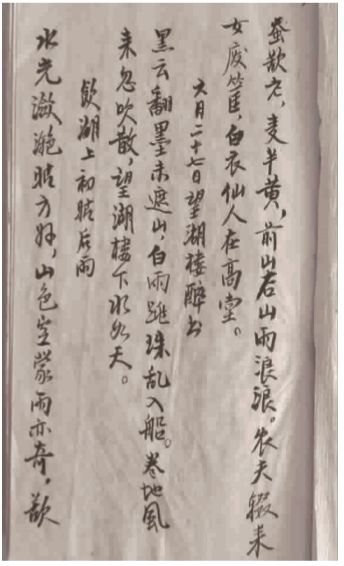 蚕欲老,麦半黄,前山后山雨浪浪。农夫辍耒
女废筐,白衣仙人在高堂。
六月二十七日望湖楼醉书
黑云翻墨未遮山,白雨跳珠乱入船。卷地风
来忽吹散,望湖楼下水如天。
饮湖上初晴后雨
水光潋滟晴方好,山色空蒙雨亦奇,欲